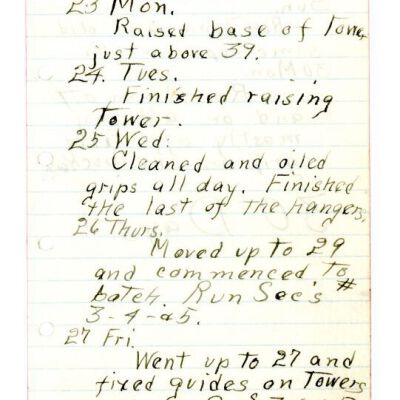 23 Mon.
Raised base of Tower
just above 39.
24. Tues.
Finished raising
Tower.
25 Wed:
Cleaned and oiled
grips all day. Finished
the last of the hangers,
26 Thurs.
Moved up to 29
and commenced to
batch. Run Sec's #
3-4-a5.
27 Fri.
Went up to 27 and
fixed guides on Towers